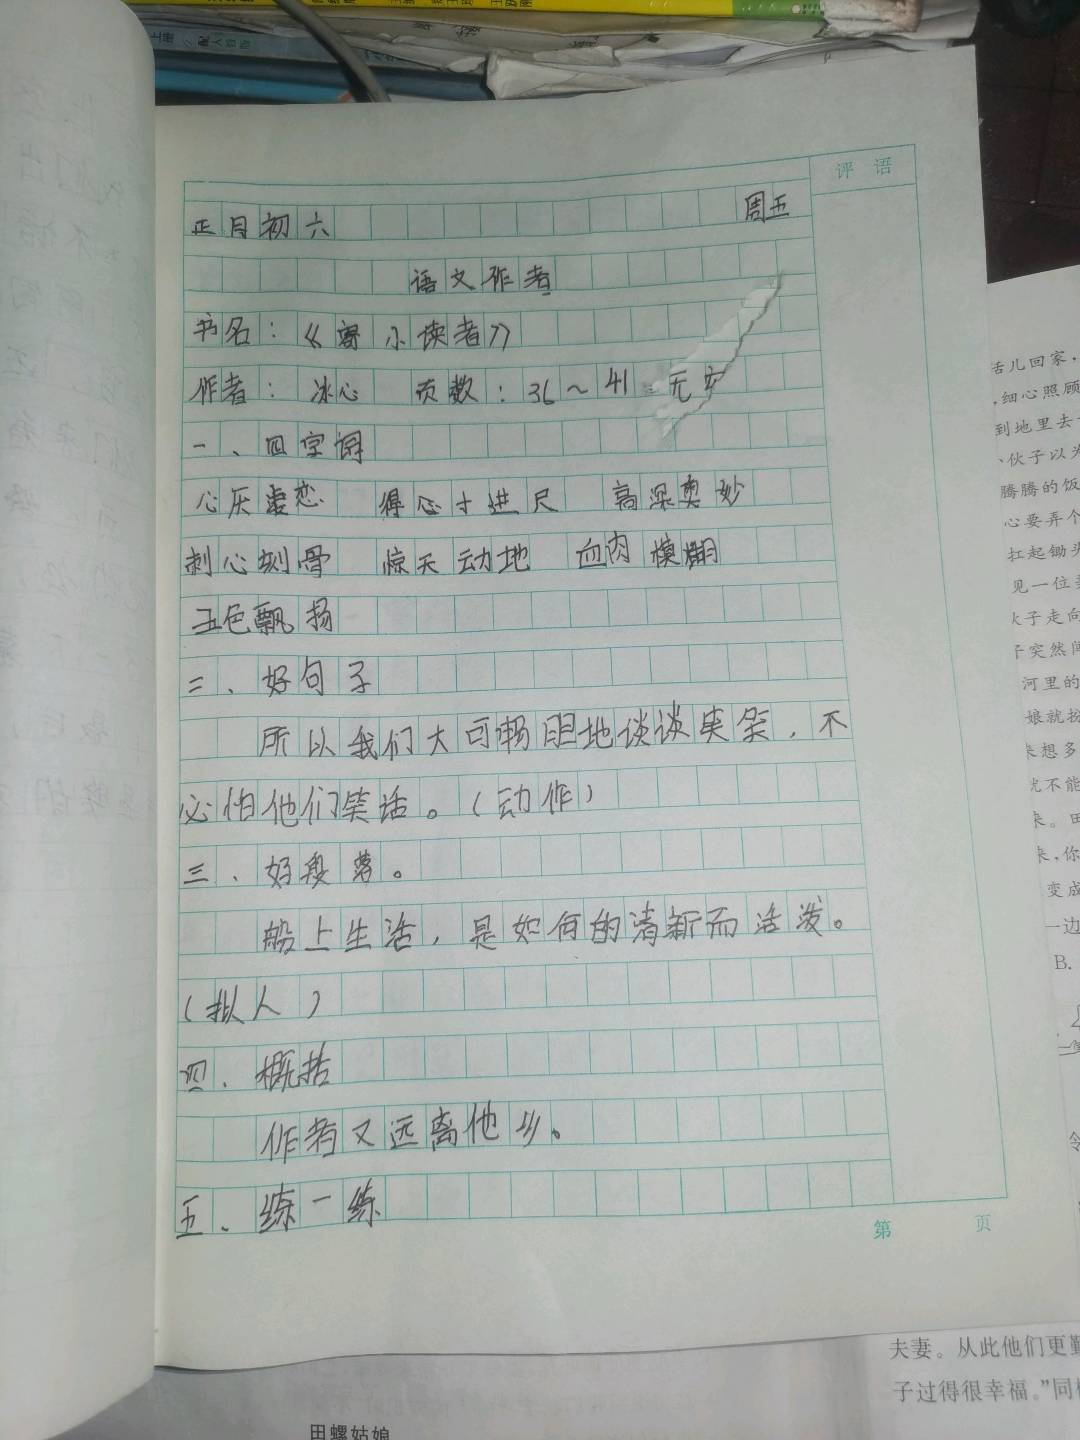 评 语
正月初六 周五
语文作者
书名：《寄小读者》
作者：冰心 页数：36～41
一、四字词
心灰 得心寸进尺 高深奥妙
刺心刻骨 惊天动地 血肉模糊
五色飘扬
二、好句子
所以我们大可畅胆地谈谈笑笑，不
必怕他们笑话。（动作）
三、好段落。
船上生活，是如何的清新而活泼。
（拟人）
四、概括
作者又远离他乡。
五、练一练
第 页
活儿回家，
细心照顾
到地里去
伙子以为
腾腾的饭
心要弄个
扛起锄头
见一位
子走向
子突然
河里的
娘就扮
想多
就不能
来。田
来，你
变成
一边
B.
夫妻。从此他们更勤
子过得很幸福。”同
田螺姑娘